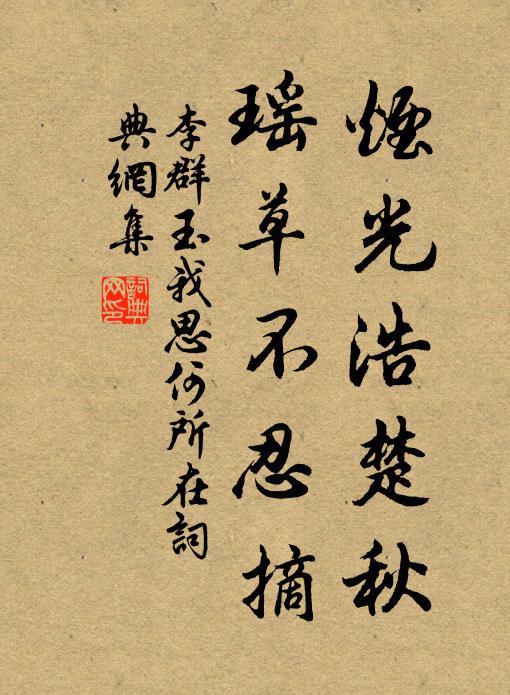 煙光浩楚秋
瑶草不忍摘
李群玉我思何所在詞
典網集
詞典
网印